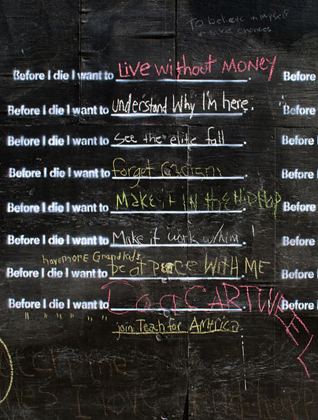 To believe in myself
Before I die I want to Live without MONEY Before
Before I die I want to understand Why I'm here. Before
Before I die I want to see the elite fall Before
Before I die I want to forget Before
Before I die I want to MAKE it IN tHE HipHop Before
Before I die I want to Make it work w/him! Before
have more Grand kids
Before I die I want to be at peace WitH ME Before
Before I die I want to Do a CARTWHEEL Before
" " " " " join Teach for America.